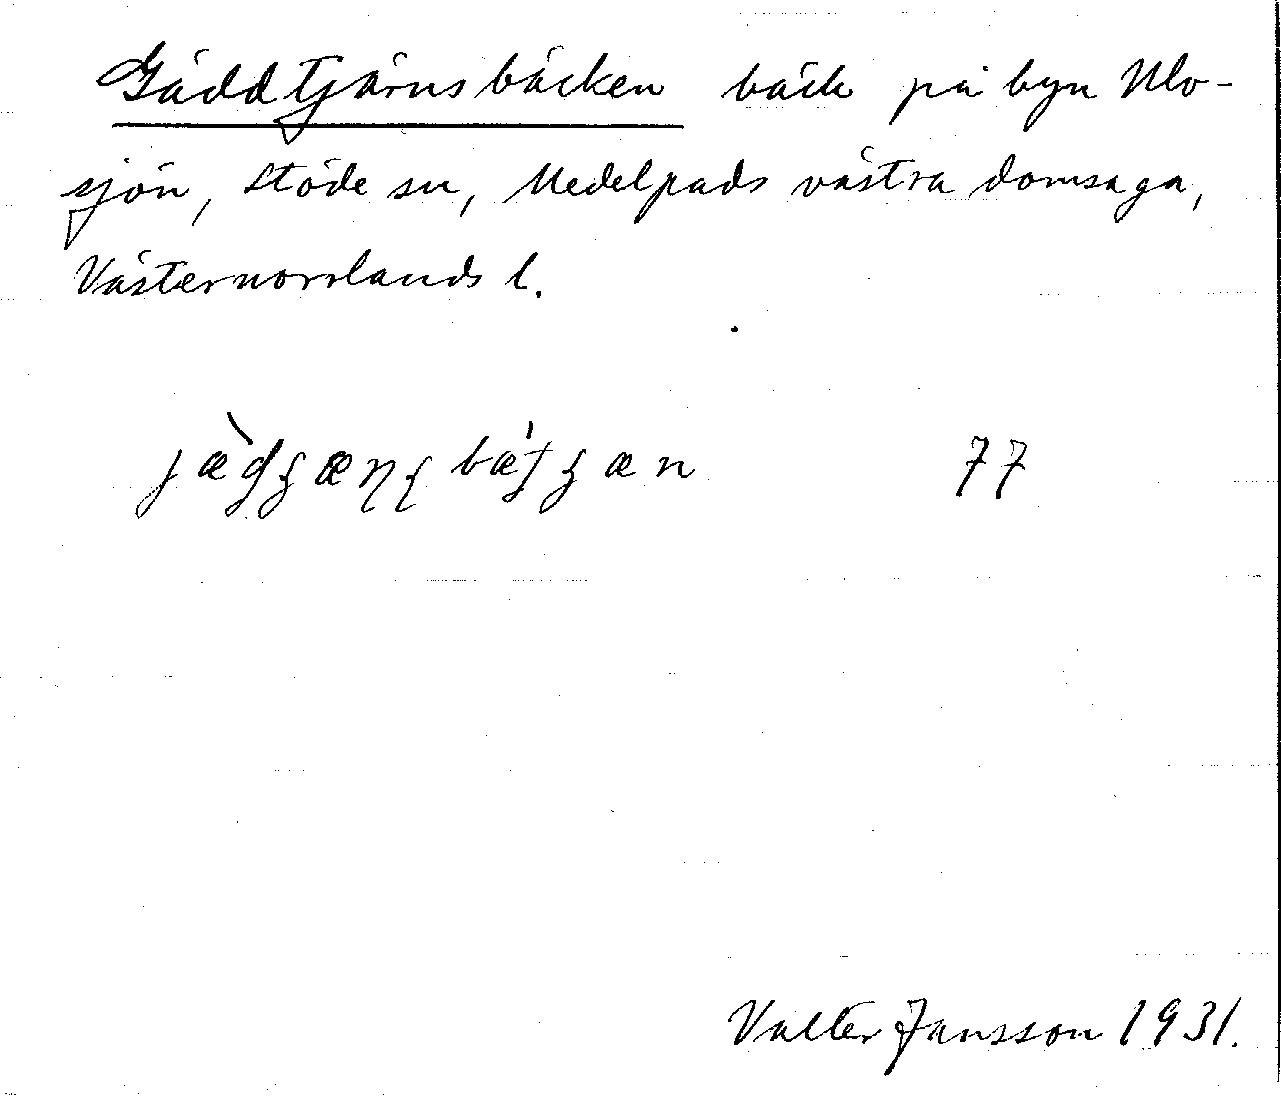 Gäddtjärnsbäcken bäck på byn Ulo-
sjön, Stöde sn, Medelpads västra domsaga,
Västernorrlands l.
77
Valter Jansson 1931.